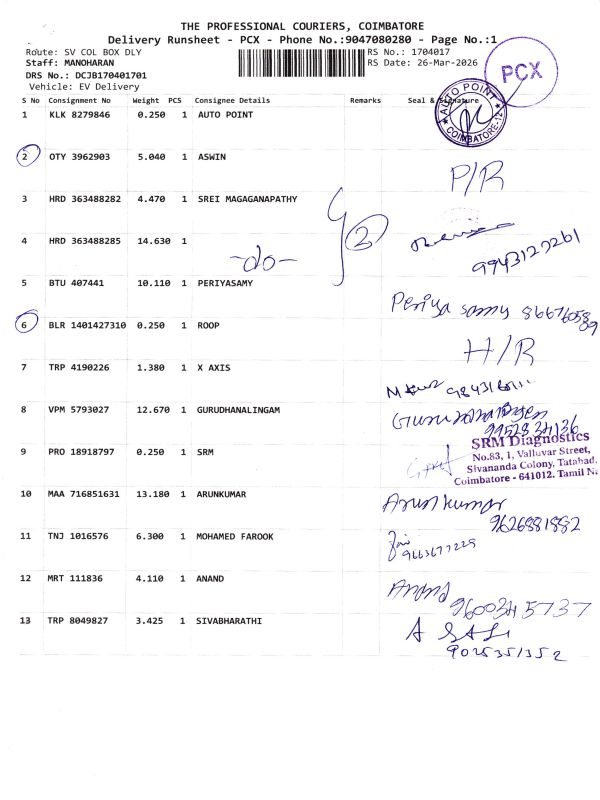 THE PROFESSIONAL COURIERS, COIMBATORE
Delivery Runsheet - PCX - Phone No.:9047080280 - Page No.:1
Route: SV COL BOX DLY
RS No.: 1704017
Staff: MANOHARAN
RS Date: 26-Mar-2026
PCX
DRS No.: DCJB170401701
Vehicle: EV Delivery
S No Consignment No Weight PCS Consignee Details Remarks Seal & Signature
AUTO POINT
COIMBATORE-12
1 KLK 8279846 0.250 1 AUTO POINT
2 OTY 3962903 5.040 1 ASWIN P/R
3 HRD 363488282 4.470 1 SREI MAGAGANAPATHY
2
4 HRD 363488285 14.630 1 -do- 9943127261
5 BTU 407441 10.110 1 PERIYASAMY Periya samy
6 BLR 1401427310 0.250 1 ROOP H/R
7 TRP 4190226 1.380 1 X AXIS
8 VPM 5793027 12.670 1 GURUDHANALINGAM
9952834136
9 PRO 18918797 0.250 1 SRM
SRM Diagnostics
No.83, 1, Valluvar Street,
Sivananda Colony, Tatabad,
Coimbatore - 641012. Tamil Na
10 MAA 716851631 13.180 1 ARUNKUMAR Arunkumar
9626881882
11 TNJ 1016576 6.300 1 MOHAMED FAROOK
9663677229
12 MRT 111836 4.110 1 ANAND Anand
9600345737
13 TRP 8049827 3.425 1 SIVABHARATHI
9025351352